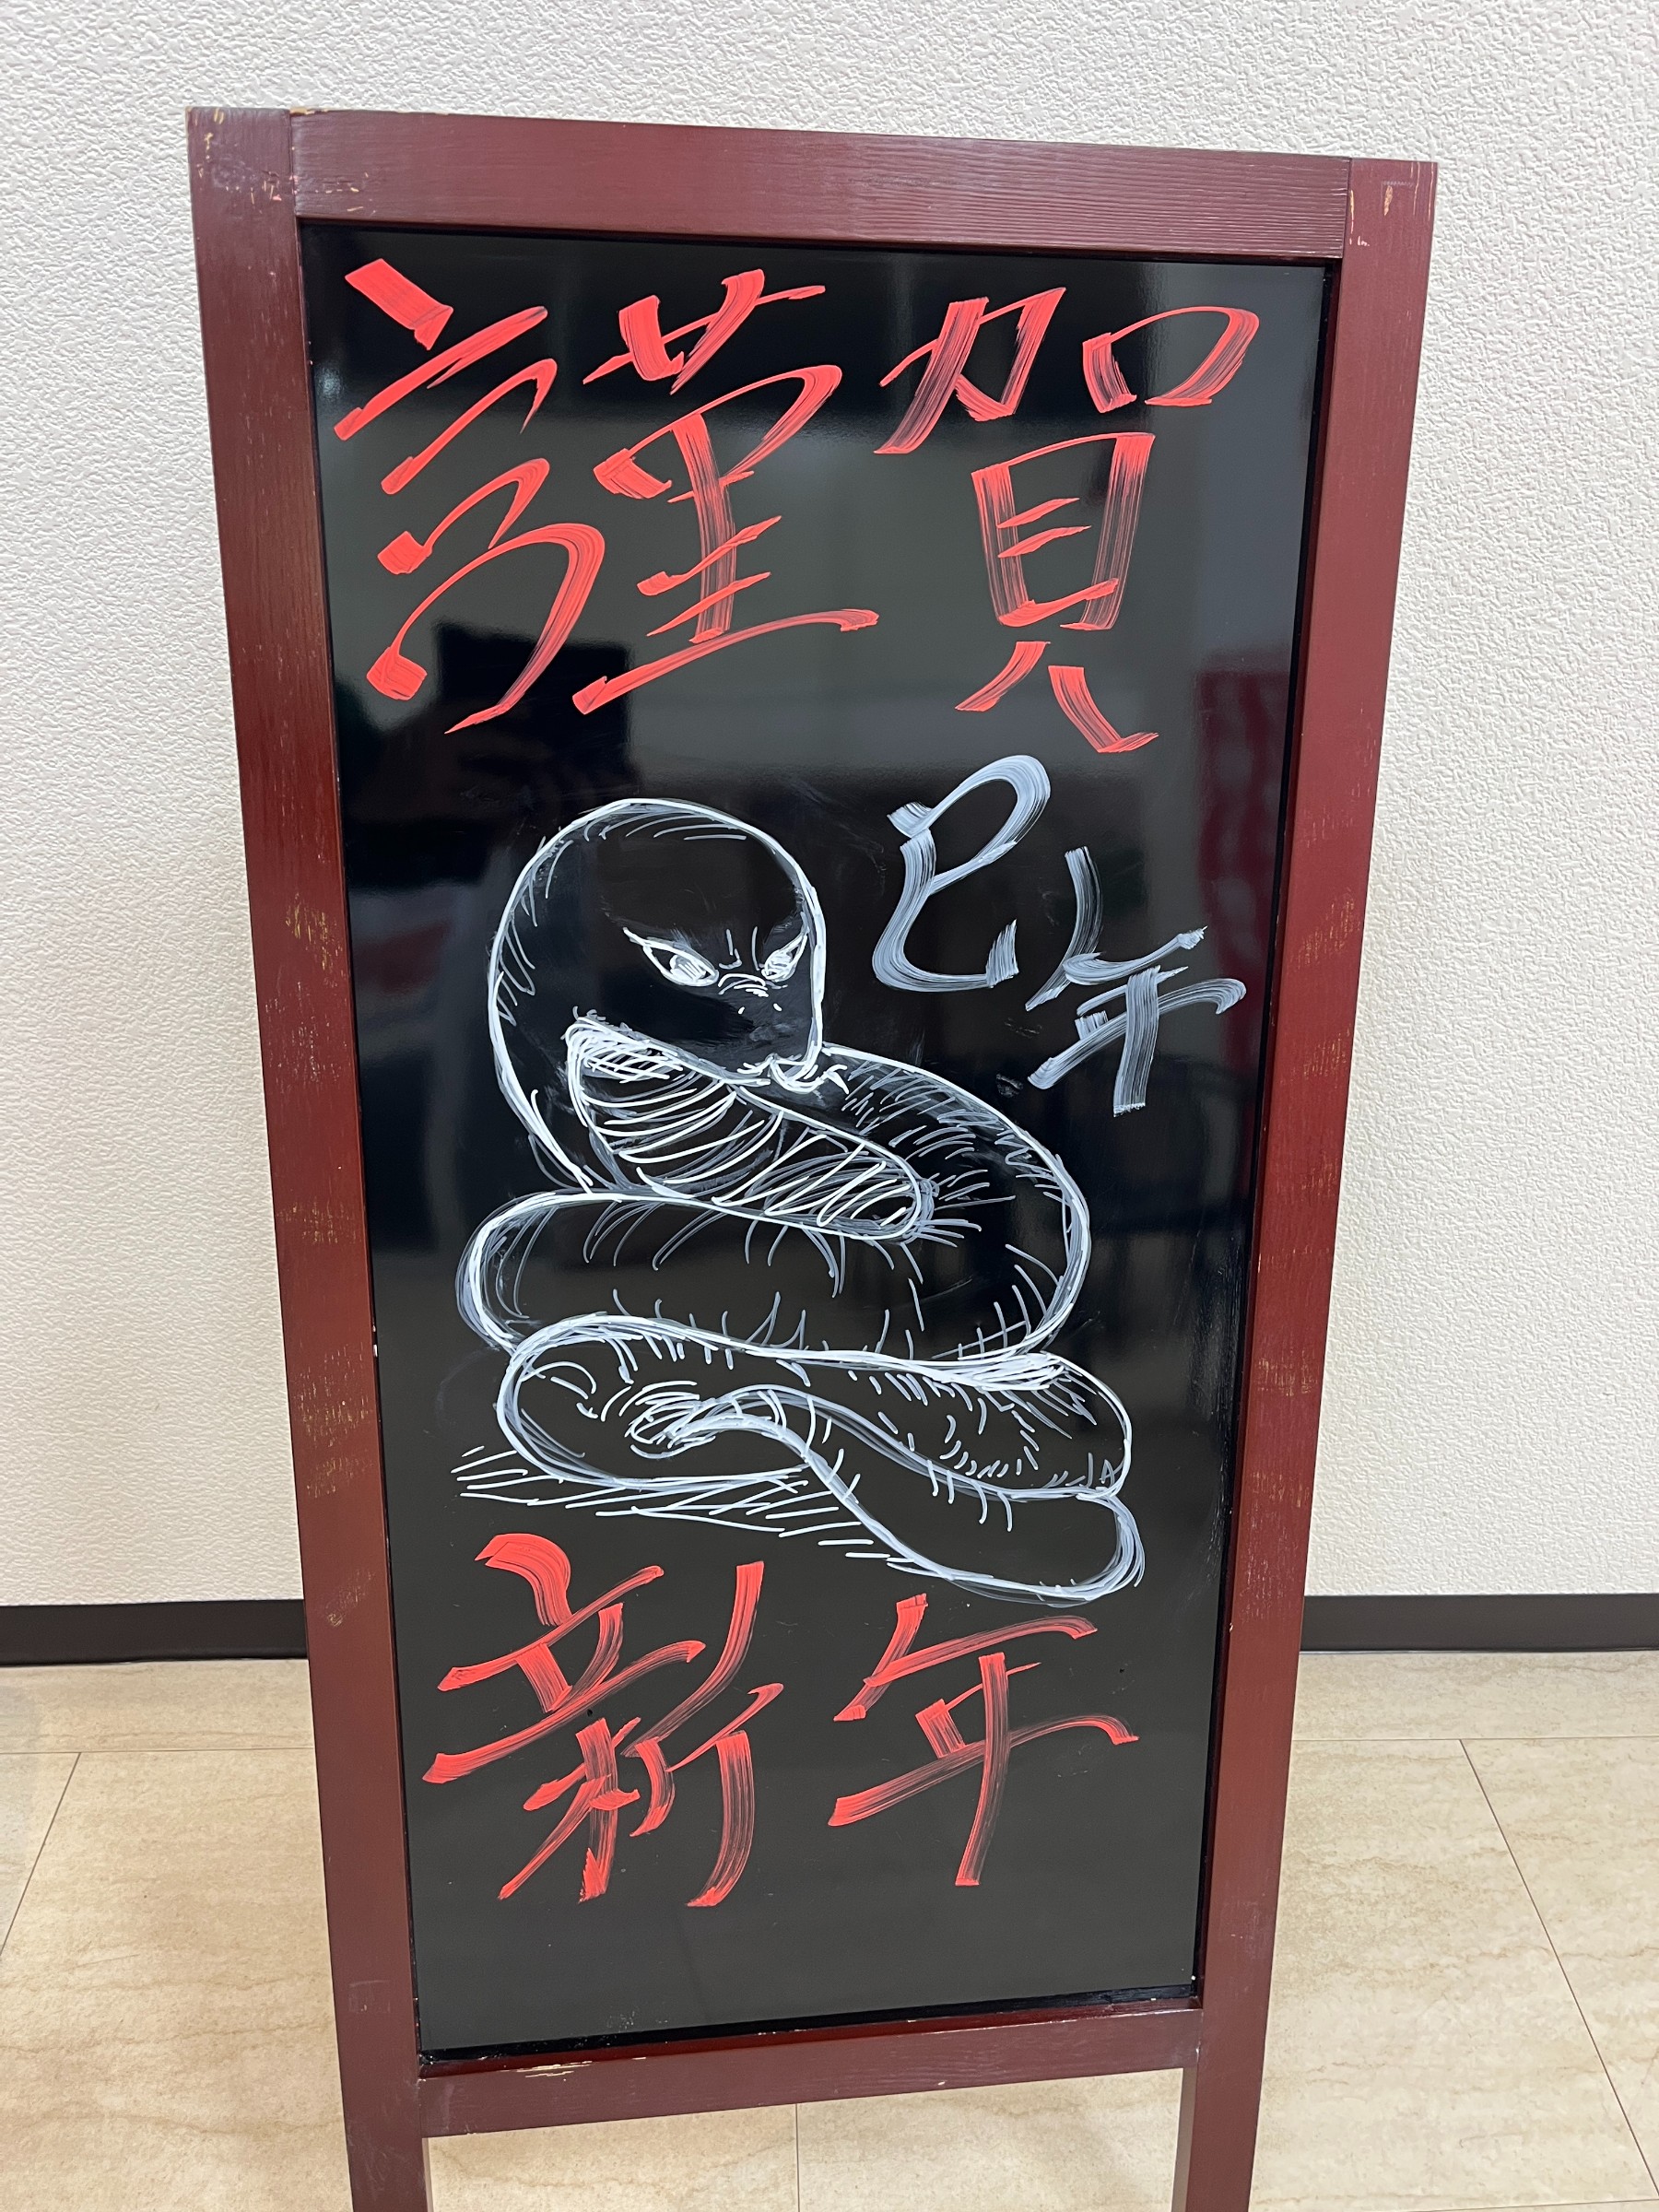 謹賀
巳年
新年